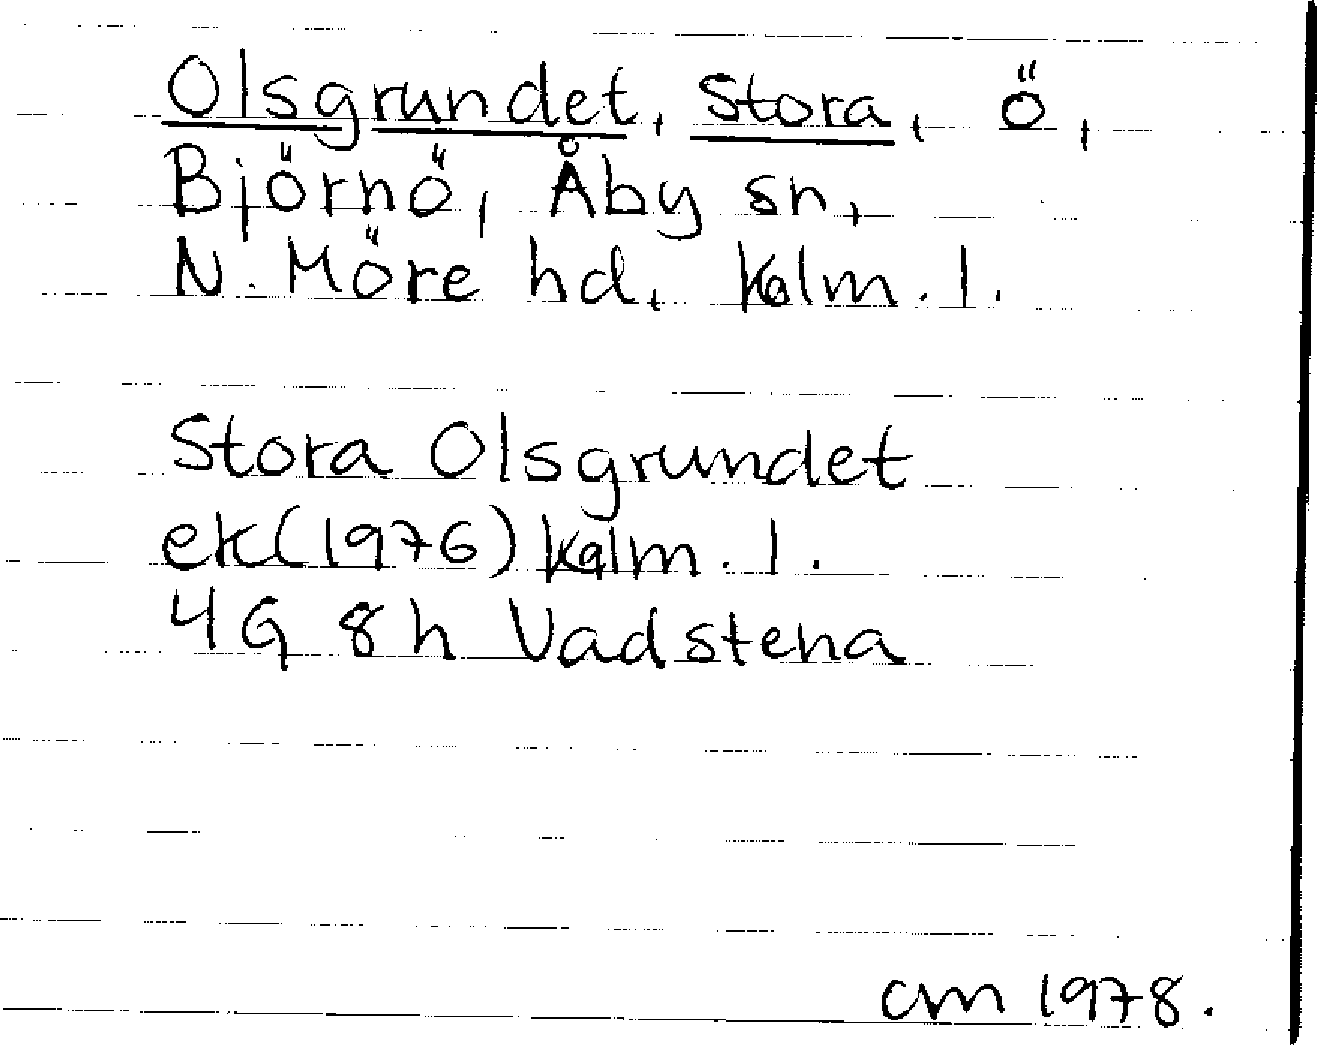 Olsgrundet, Stora, ö,
Björnö, Åby sn,
N. Möre hd, Kalm. l.
Stora Olsgrundet
ek(1976) Kalm. l.
4G 8h Vadstena
cm 1978.